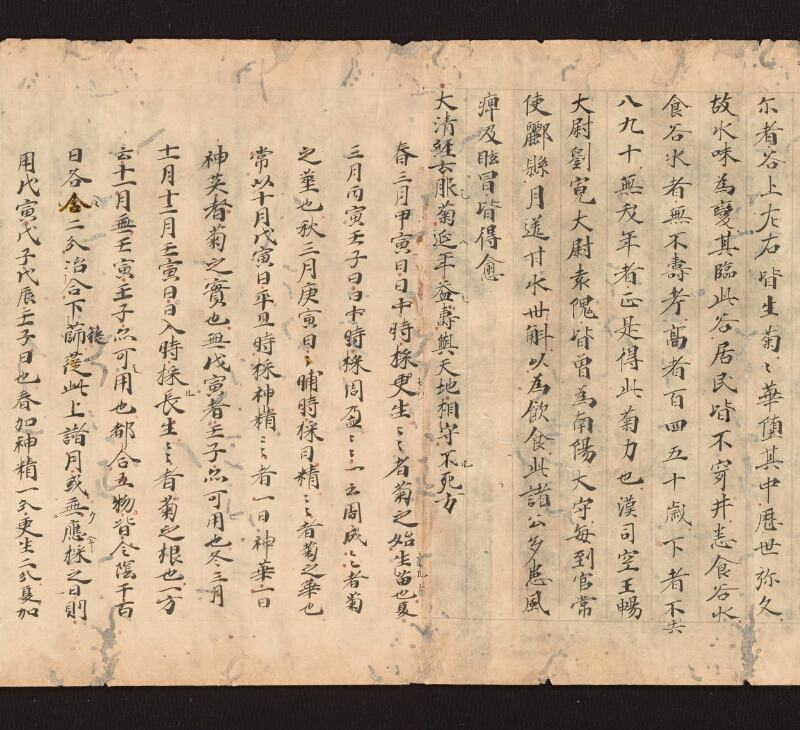 尒者谷上左右皆生菊〻華墮其中歷世弥久
故水味為變其臨此谷居民皆不穿井悉食谷水
食谷水者無不壽考高者百四五十歲下者不失
八九十無夭年者正是得此菊力也漢司空王暢
大尉劉寬大尉袁傀皆曾為南陽大守每到官常
使酈縣月送甘水卌斛以為飲食此諸公多患風
痺及眩冒皆得愈
大清經云服菊延年益壽與天地相守不死方
春三月甲寅日日中時採更生〻〻者菊之始生苗也夏
三月丙寅壬子日日中時採周盈〻〻一云周成〻〻者菊
之莖也秋三月庚寅日〻晡時採日精〻〻者菊之華也
常以十月戊寅日平旦時採神精〻〻者一曰神華一曰
神英者菊之實也無戊寅者壬子亦可用也冬三月
十一月十二月壬寅日日入時採長生〻〻者菊之根也一方
云十一月無壬寅壬子亦可用也都合五物皆令陰干百
日各令二分治合下篩此上諸月或無應採之日則
用戊寅戊子戊辰壬子日也春加神精一分更生二分夏加